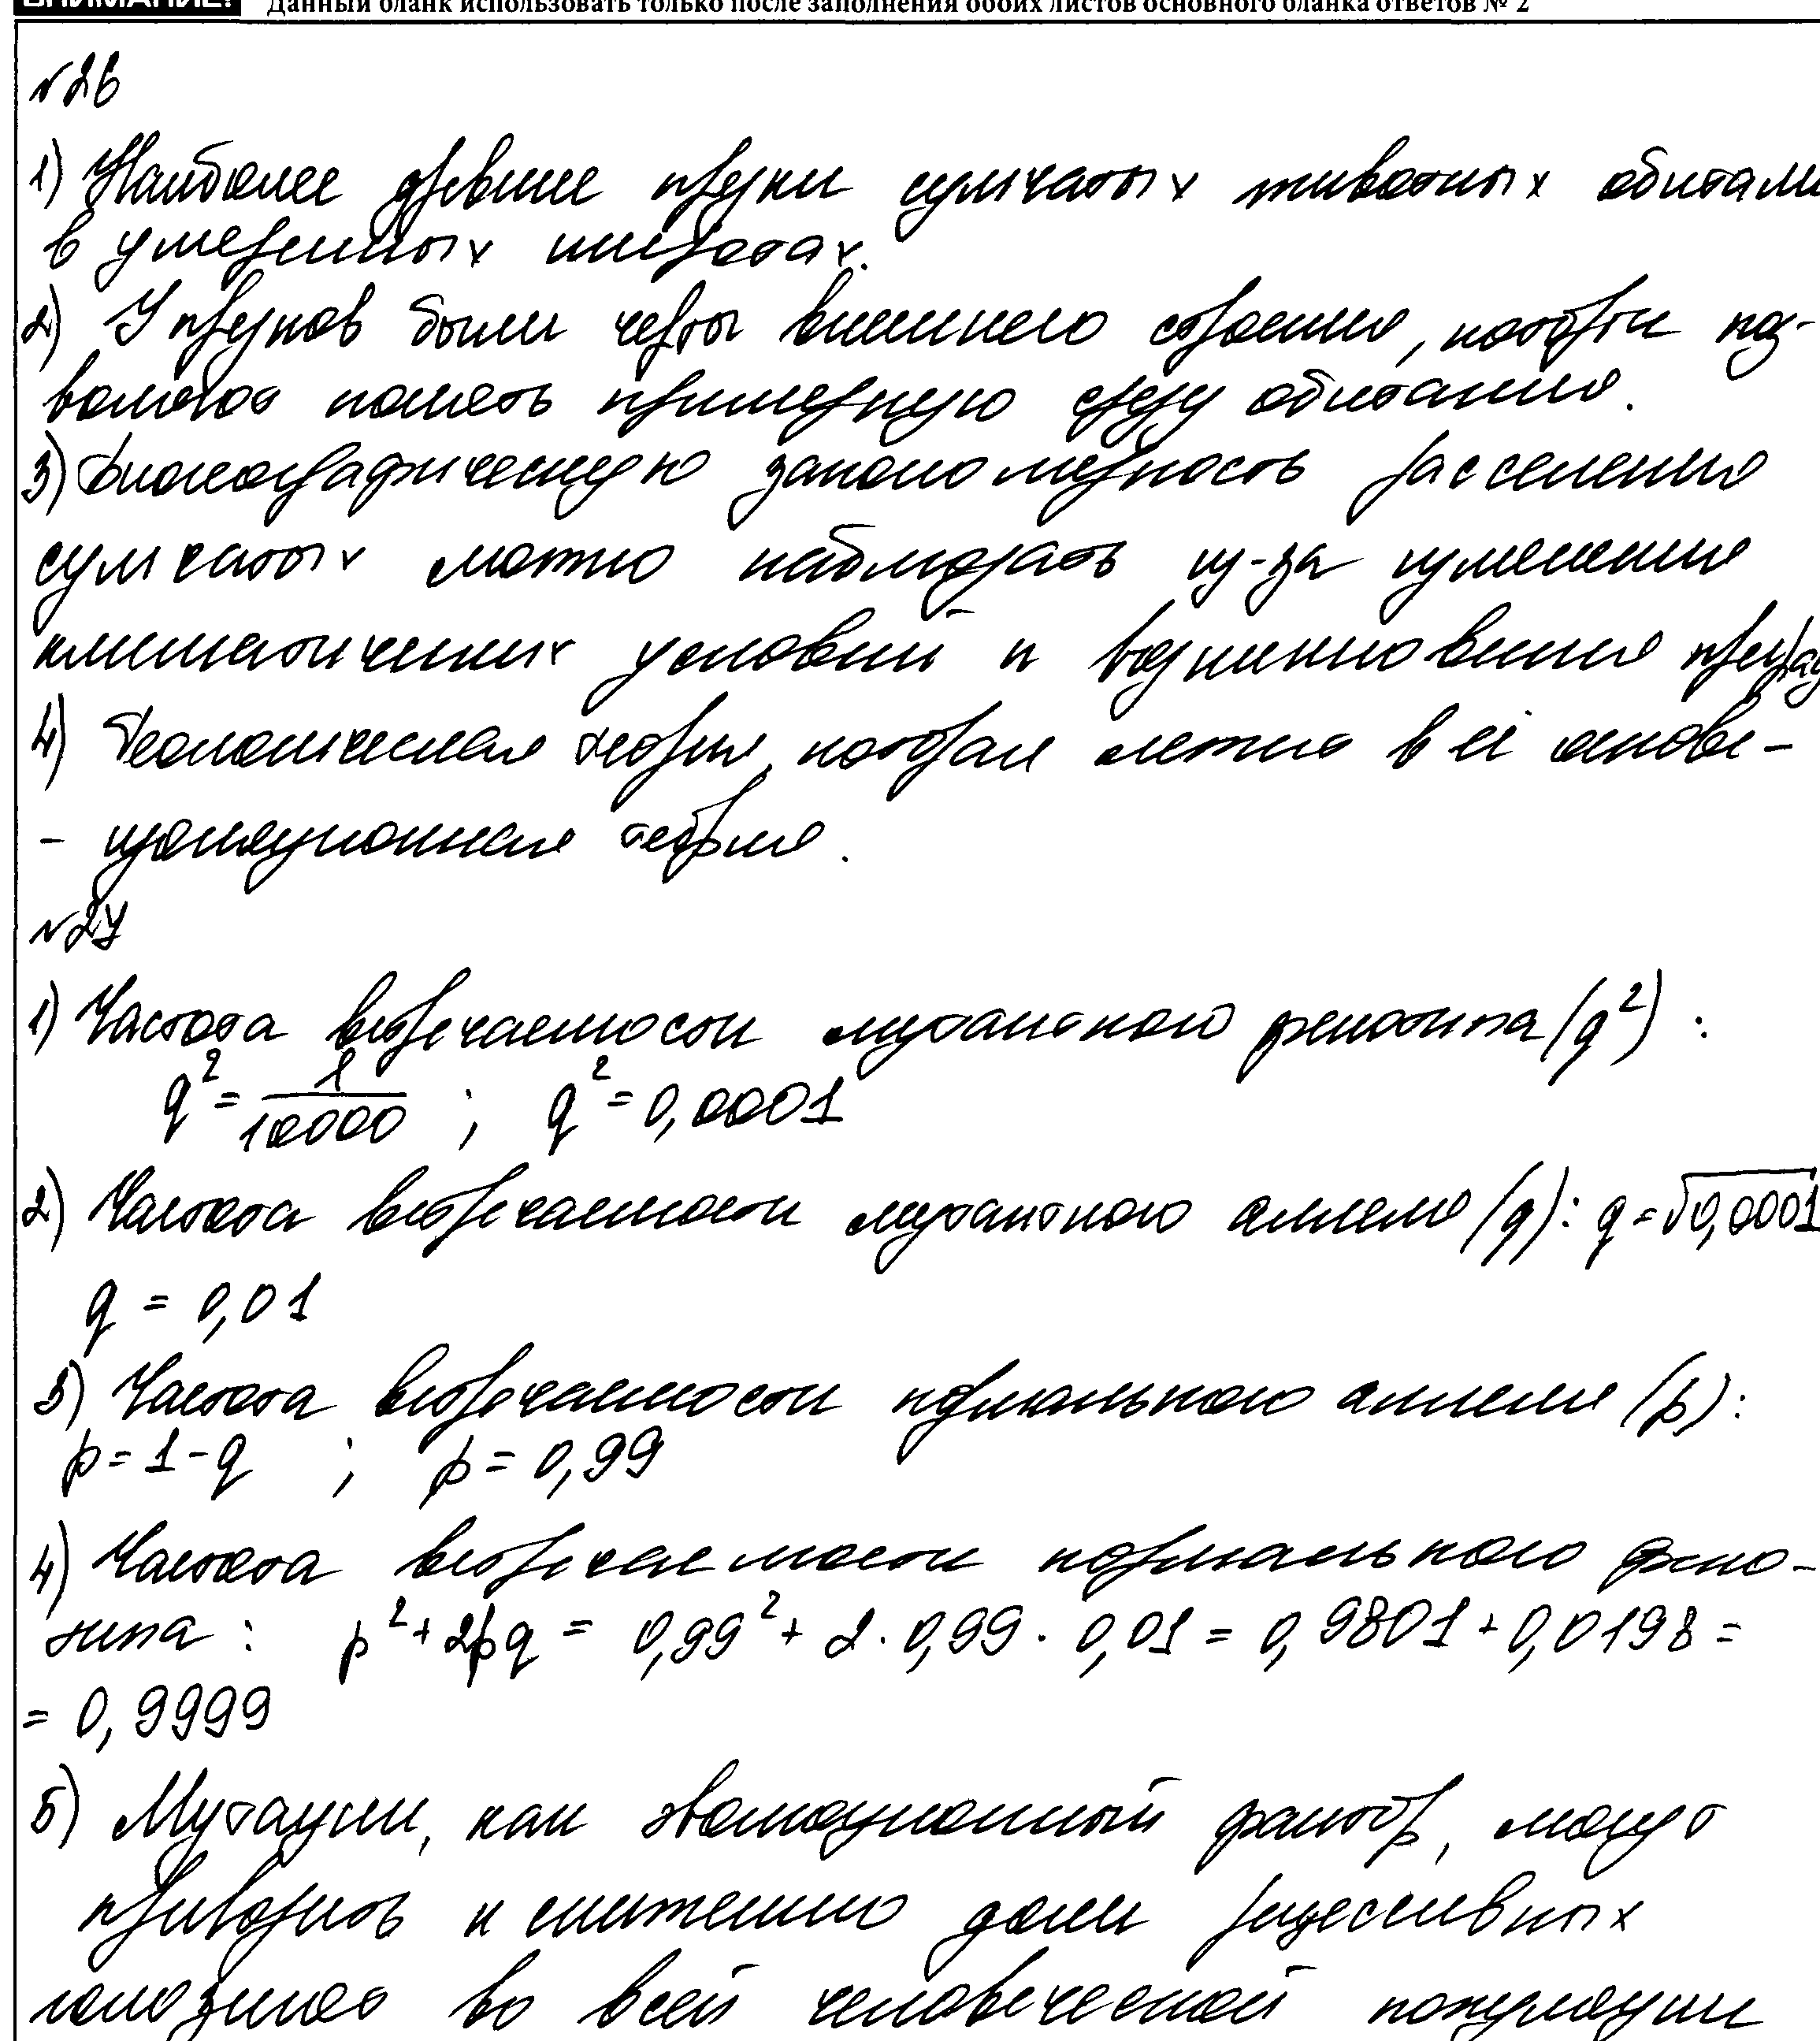 ВНИМАНИЕ! Данный бланк использовать только после заполнения обоих листов основного бланка ответов № 2
№26
1) Наиболее древние предки сумчатых животных обитали
в умеренных широтах.
2) У предков были черты внешнего строения, которые поз-
волялось понять примерную среду обитания.
3) Биогеографическую закономерность расселения
сумчатых можно наблюдать из-за изменения
климатических условий и возникновения преград
4) Геологическая теория, которая лежит в её основе -
- изоляционная теория.
№27
1) Частота встречаемости мутантного фенотипа (q²) :
q² = 1/10000 ; q² = 0,0001
2) Частота встречаемости мутантного аллеля (q): q = √0,0001
q = 0,01
3) Частота встречаемости нормального аллеля (p):
p = 1 - q ; p = 0,99
4) Частота встречаемости нормального фено-
типа : p² + 2pq = 0,99² + 2 · 0,99 · 0,01 = 0,9801 + 0,0198 =
= 0,9999
5) Мутации, как эволюционный фактор, могут
приводить к снижению доли рецессивных
гомозигот во всей человеческой популяции